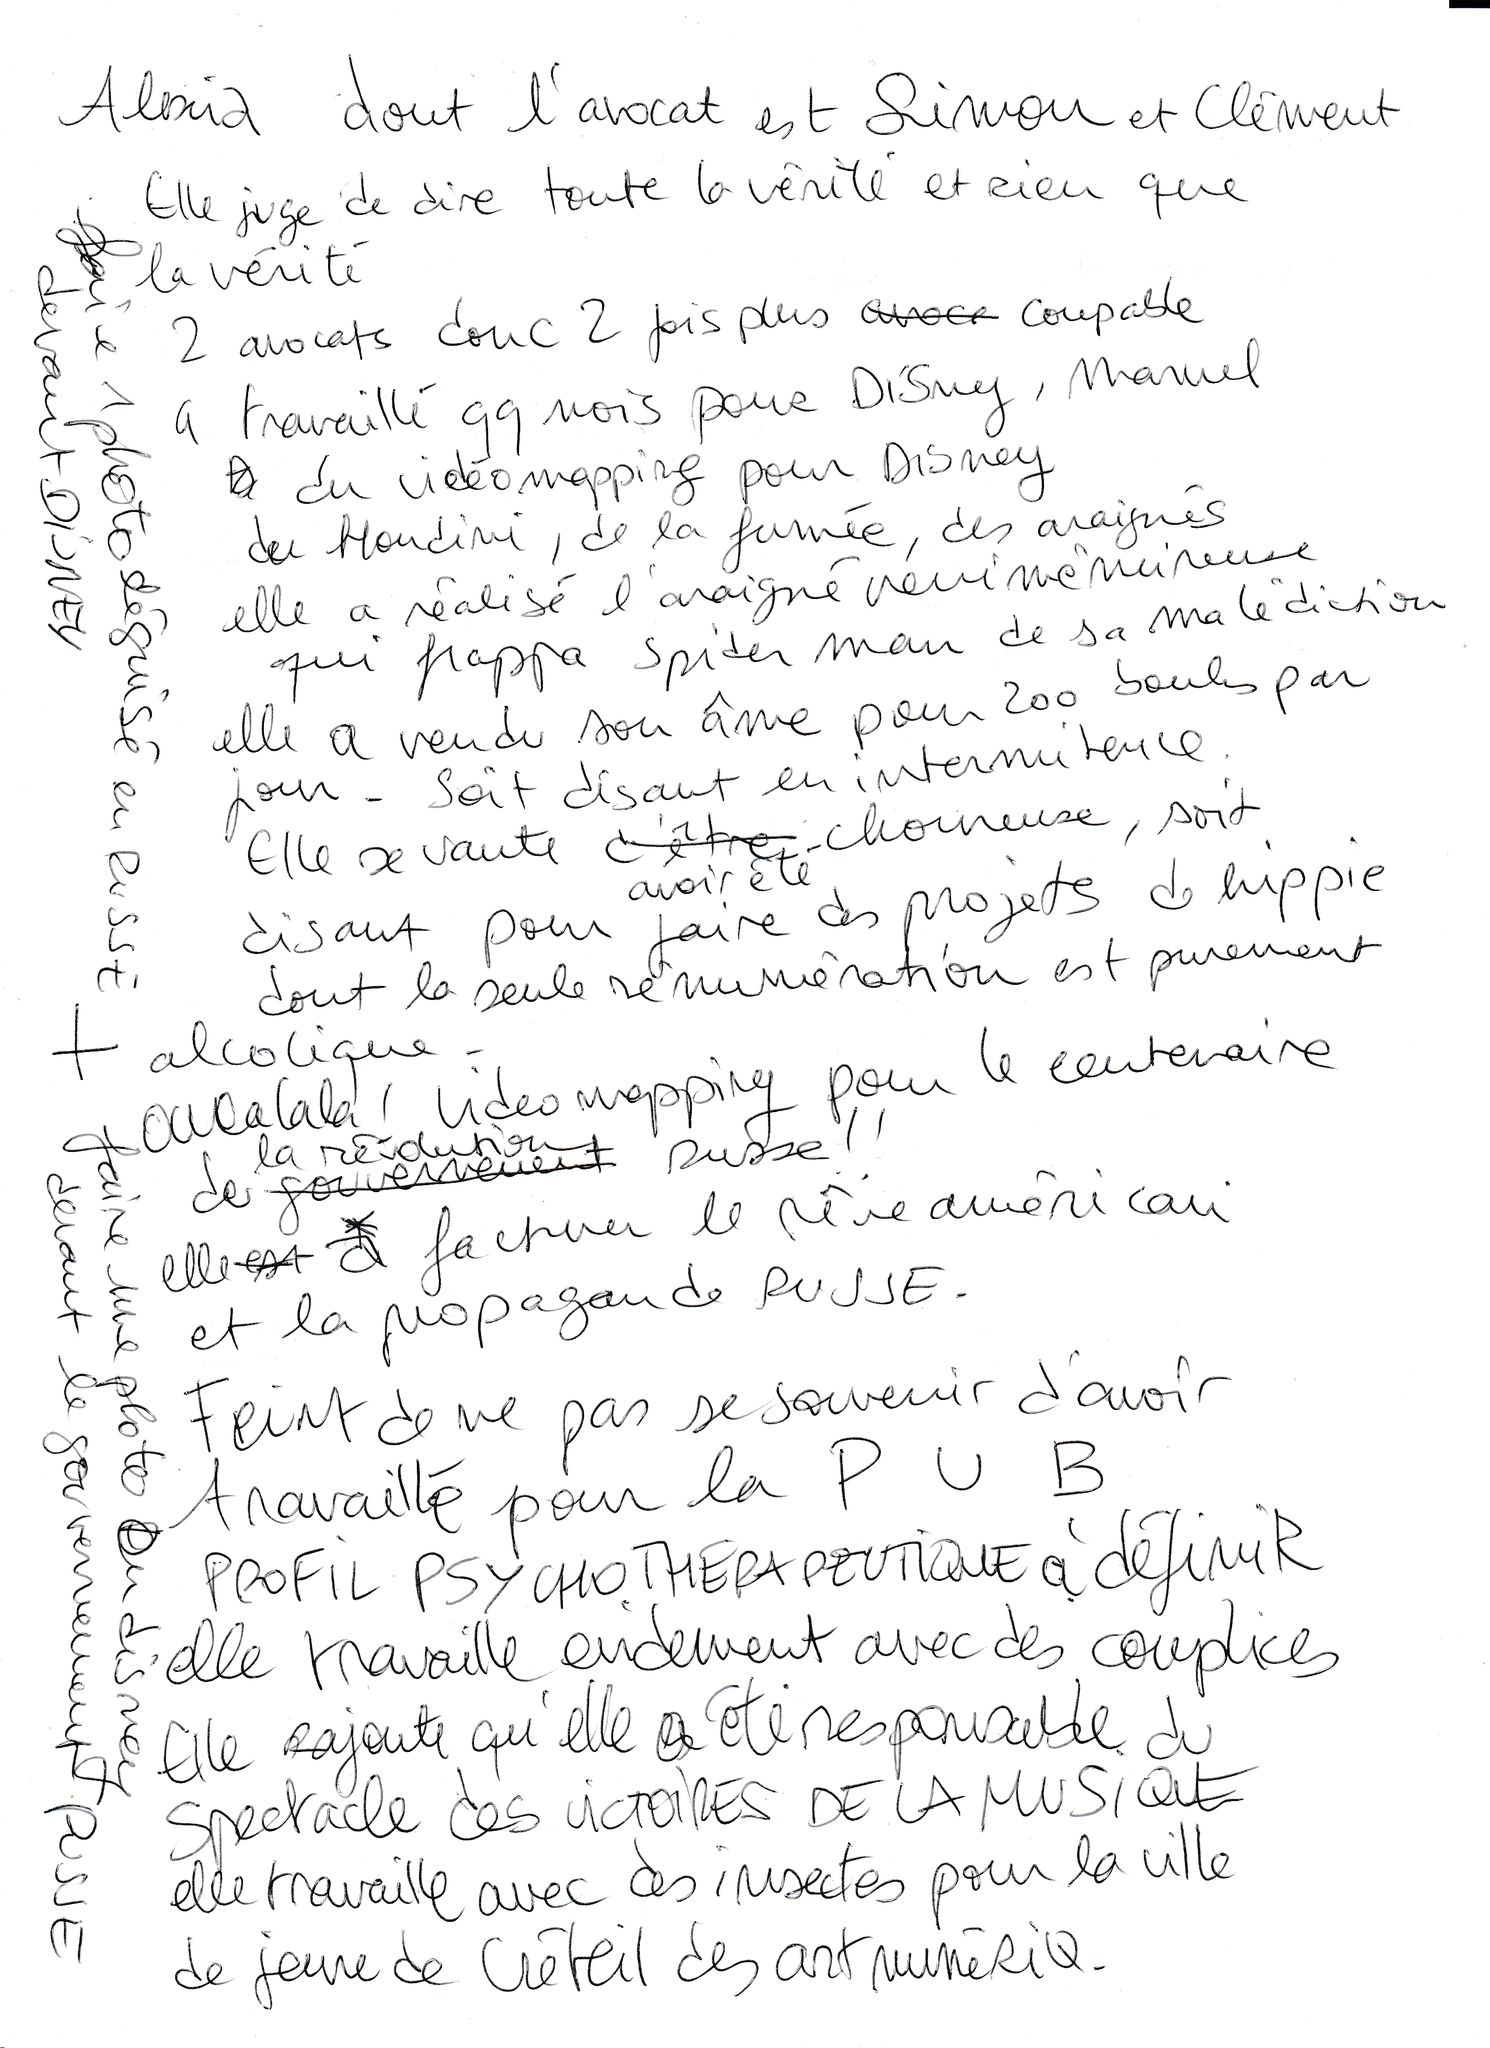 Alexia dont l'avocat est Simon et Clément
Elle juge de dire toute la vérité et rien que
la vérité
2 avocats donc 2 fois plus avoca coupable
a travaillé qq mois pour DiSney, Marvel
du vidéomapping pour Disney
du Houdini, de la fumée, des araignés
elle a réalisé l'araigné
qui frappa spider man de sa malédiction
elle a vendu son âme pour 200 boules par
jour - Soit disant en intermitence.
Elle se vante d'être chomeuse, soit
avoir été
disant pour faire des projets de hippie
dont la seule rémunération est purement
alcolique -
! Vidéomapping pour le centenaire
la révolution
de gouvernement russe !!
elle est a facturer le rêve américain
et la propagande RUSSE.
Feint de ne pas se souvenir d'avoir
travaillé pour la P U B
PROFIL PSYCHOTHERAPEUTIQUE à défiNiR
elle travaille avec des complices
Elle rajoute qu'elle a été responsable du
Spectacle des VICTOIRES DE LA MUSIQUE
elle travaille avec des insectes pour la ville
de jeune de Créteil des art numériQ.
+ faire 1 photo déguisé en RUSSE
devant DISNEY
+
+ faire une photo en disney
devant le gouvernement RUSSE